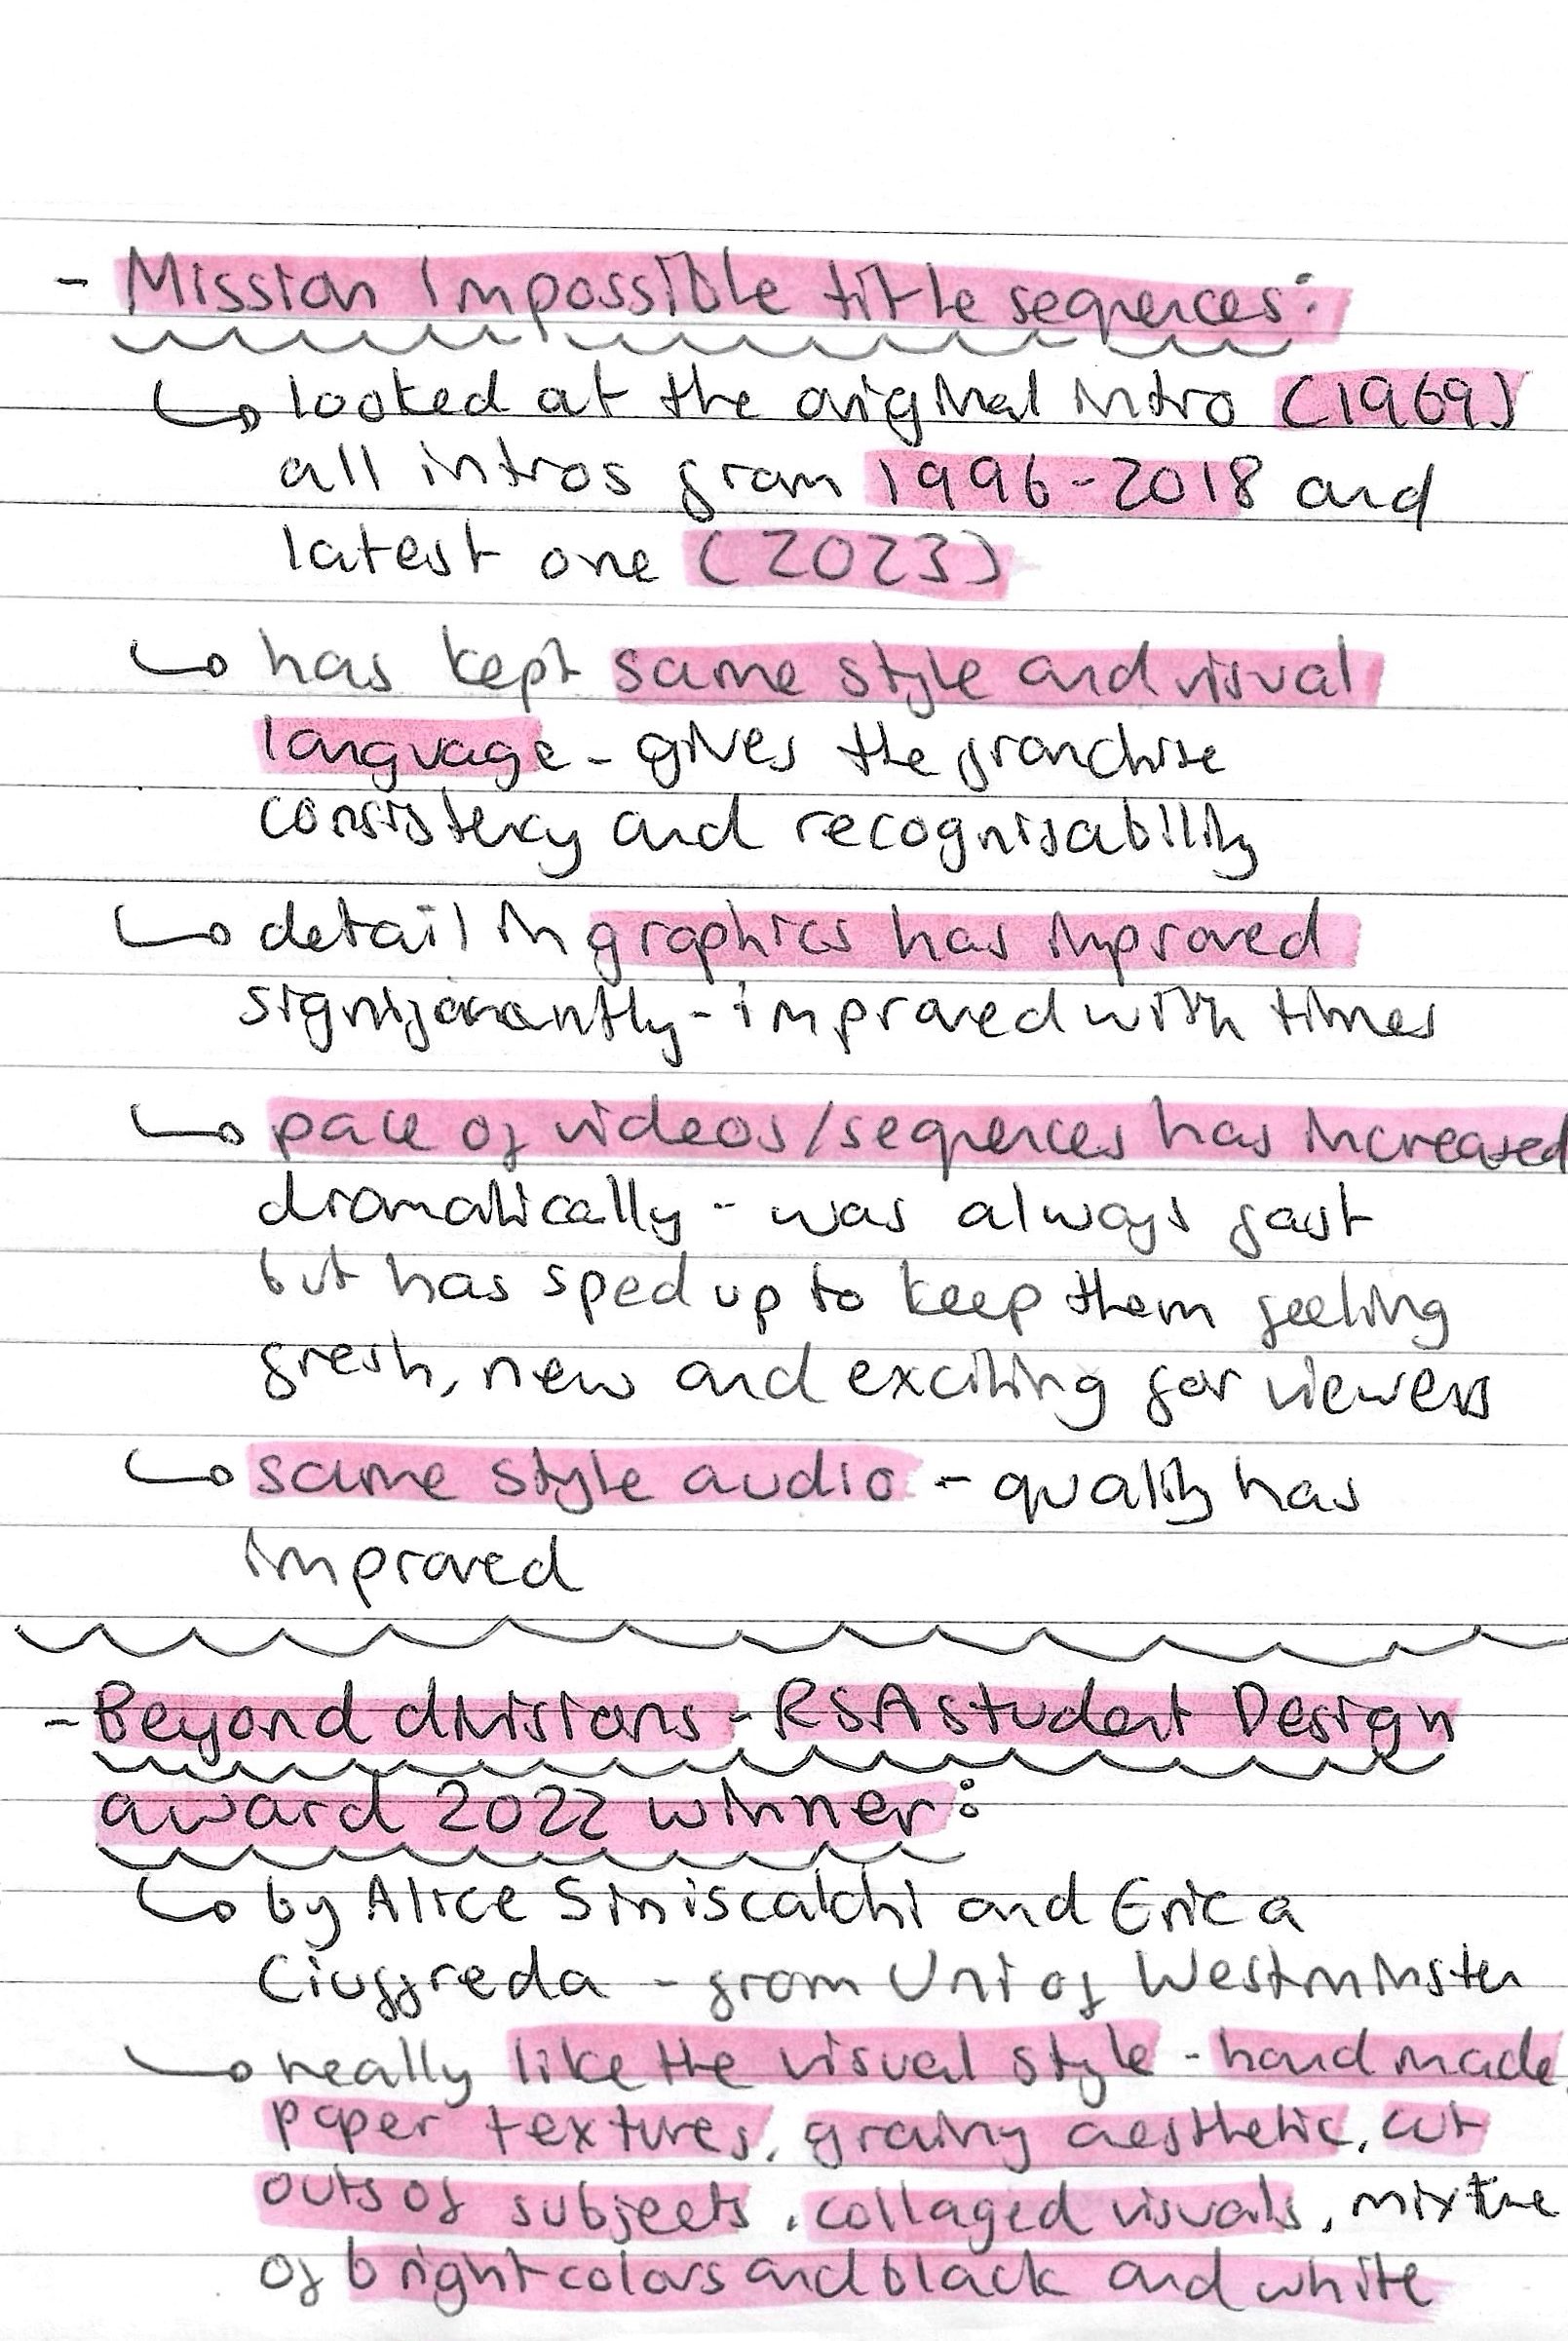 - Mission Impossible title sequences:
↳ looked at the original intro (1969)
all intros from 1996-2018 and
latest one (2023)
↳ has kept same style and visual
language - gives the franchise
consistency and recognisability
↳ detail in graphics has improved
significantly - improved with times
↳ pace of videos/sequences has increased
dramatically - was always fast
but has sped up to keep them feeling
fresh, new and exciting for viewers
↳ same style audio - quality has
improved
- Beyond divisions - RSA student Design
award 2022 winner:
↳ by Alice Siniscalchi and Erica
Ciuffreda - from Uni of Westminster
↳ really like the visual style - hand made
paper textures, grainy aesthetic, cut
outs of subjects, collaged visuals, mixture
of bright colors and black and white